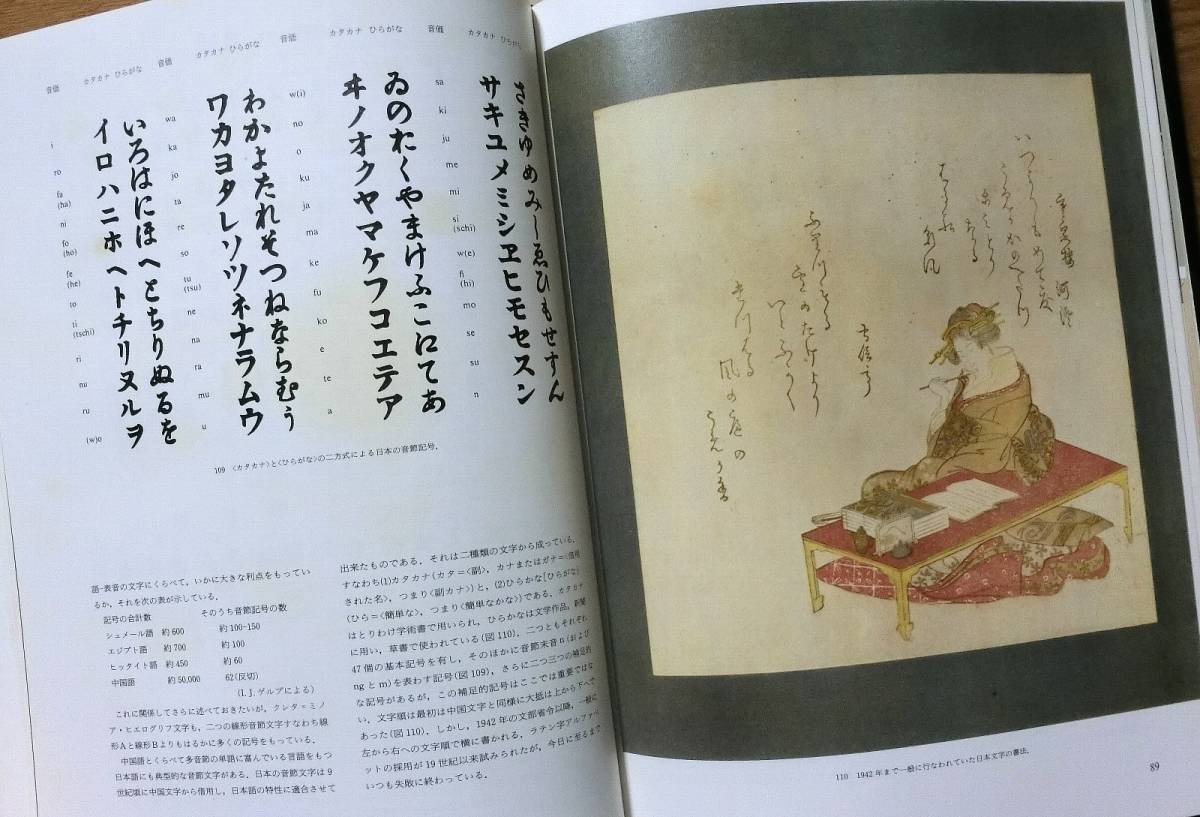 音価 カタカナ ひらがな 音価 カタカナ ひらがな 音価 カタカナ ひらがな 音価 カタカナ ひらがな
i ro fa (ha) ni fo (ho) fe (he) to ti (tschi) ri nu ru (w)o
イロハニホヘトチリヌルヲ
いろはにほへとちりぬるを
wa ka jo ta re so tu (tsu) ne na ra mu u
ワカヨタレソツネナラムウ
わかよたれそつねならむう
w(i) no o ku ja ma ke fu ko e te a
ヰノオクヤマケフコエテア
ゐのおくやまけふこえてあ
sa ki ju me mi si (schi) w(e) fi (hi) mo se su n
サキユメミシヱヒモセスン
さきゆめみしゑひもせすん
109 〈カタカナ〉と〈ひらがな〉の二方式による日本の音節記号.
語-表音の文字にくらべて，いかに大きな利点をもってい
るか，それを次の表が示している．
記号の合計数 そのうち音節記号の数
シュメール語 約600 約100-150
エジプト語 約700 約100
ヒッタイト語 約450 約60
中国語 約50,000 62(反切)
(I. J. ゲルプによる)
これに関係してさらに述べておきたいが，クレタ＝ミノ
ア・ヒエログリフ文字も，二つの線形音節文字すなわち線
形AとBよりもはるかに多くの記号をもっている．
中国語とくらべて多音節の単語に富んでいる言語をもつ
日本語にも典型的な音節文字がある．日本の音節文字は9
世紀頃に中国文字から借用し，日本語の特性に適合させて
出来たものである．それは二種類の文字から成っている．
すなわち(1)カタカナ(カタ=〈副〉，カナまたはガナ=〈借用
された名〉，つまり〈副カナ〉)と，(2)ひらかな〔ひらがな〕
(ひら=〈簡単な〉，つまり〈簡単なかな〉)である．カタカナ
はとりわけ学術書で用いられ，ひらかなは文学作品，新聞
に用い，草書で使われている(図110)．二つともそれぞれ
47個の基本記号を有し，そのほかに音節末音n(および
ngとm)を表わす記号(図109)，さらに二つ三つの補足的
な記号があるが，この補足的記号はここでは重要ではな
い．文字順は最初は中国文字と同様に大抵は上から下へで
あった(図110)．しかし，1942年の文部省令以降，一般に
左から右への文字順で横に書かれる．ラテン字アルファベ
ットの採用が19世紀以来試みられたが，今日に至るまで
いつも失敗に終わっている．
110 1942年まで一般に行なわれていた日本文字の書法.
89